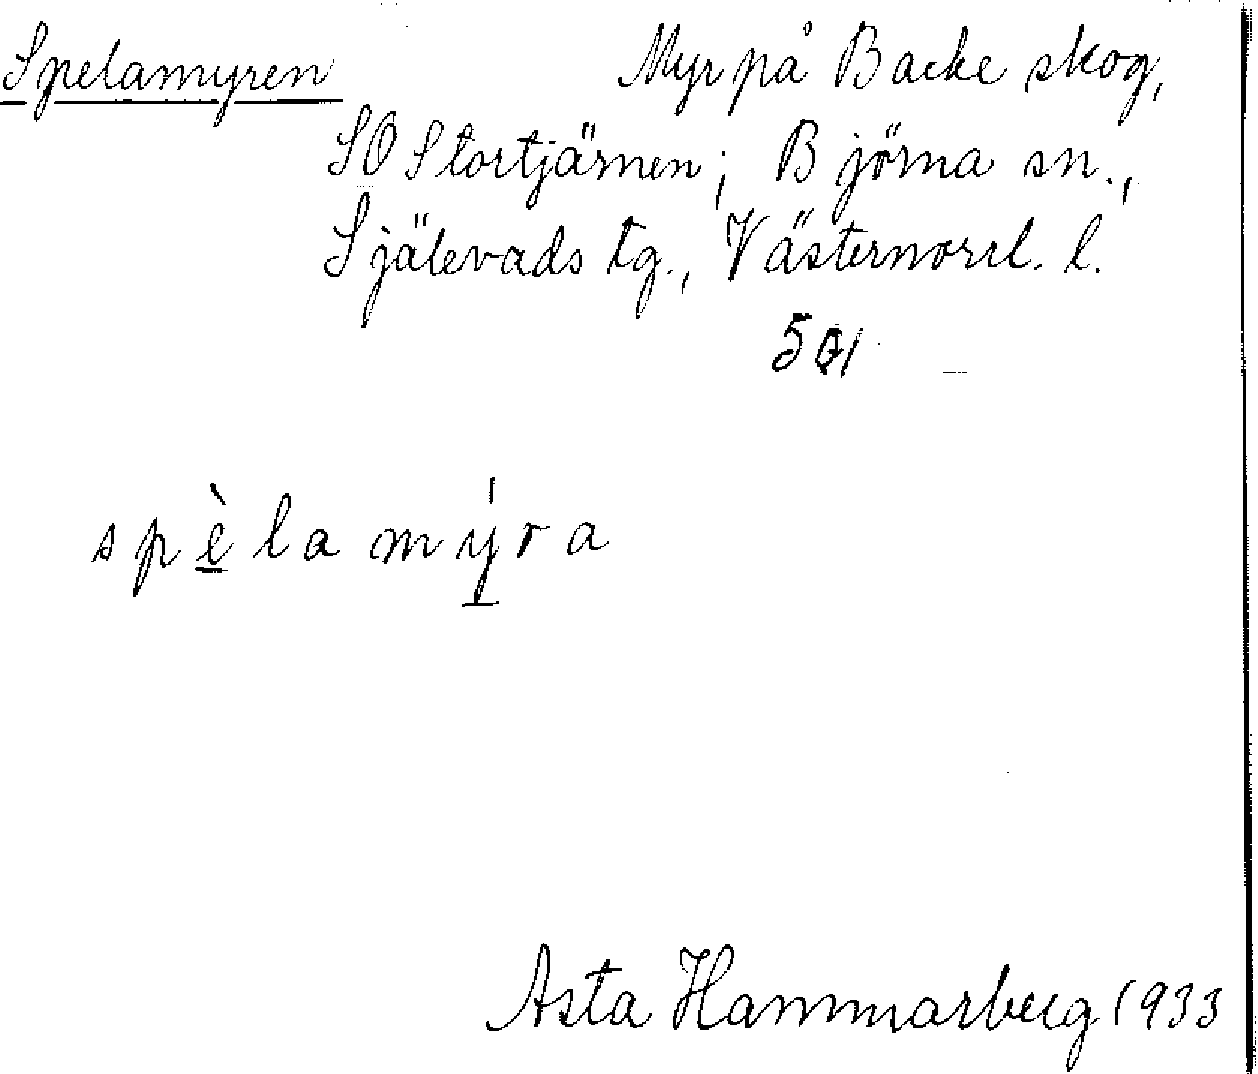 Spelamyren Myr på Backe skog,
SO Stortjärnen; Björna sn.,
Själevads tg., Västernorrl. l.
spèlamýra
Asta Hammarberg 1933